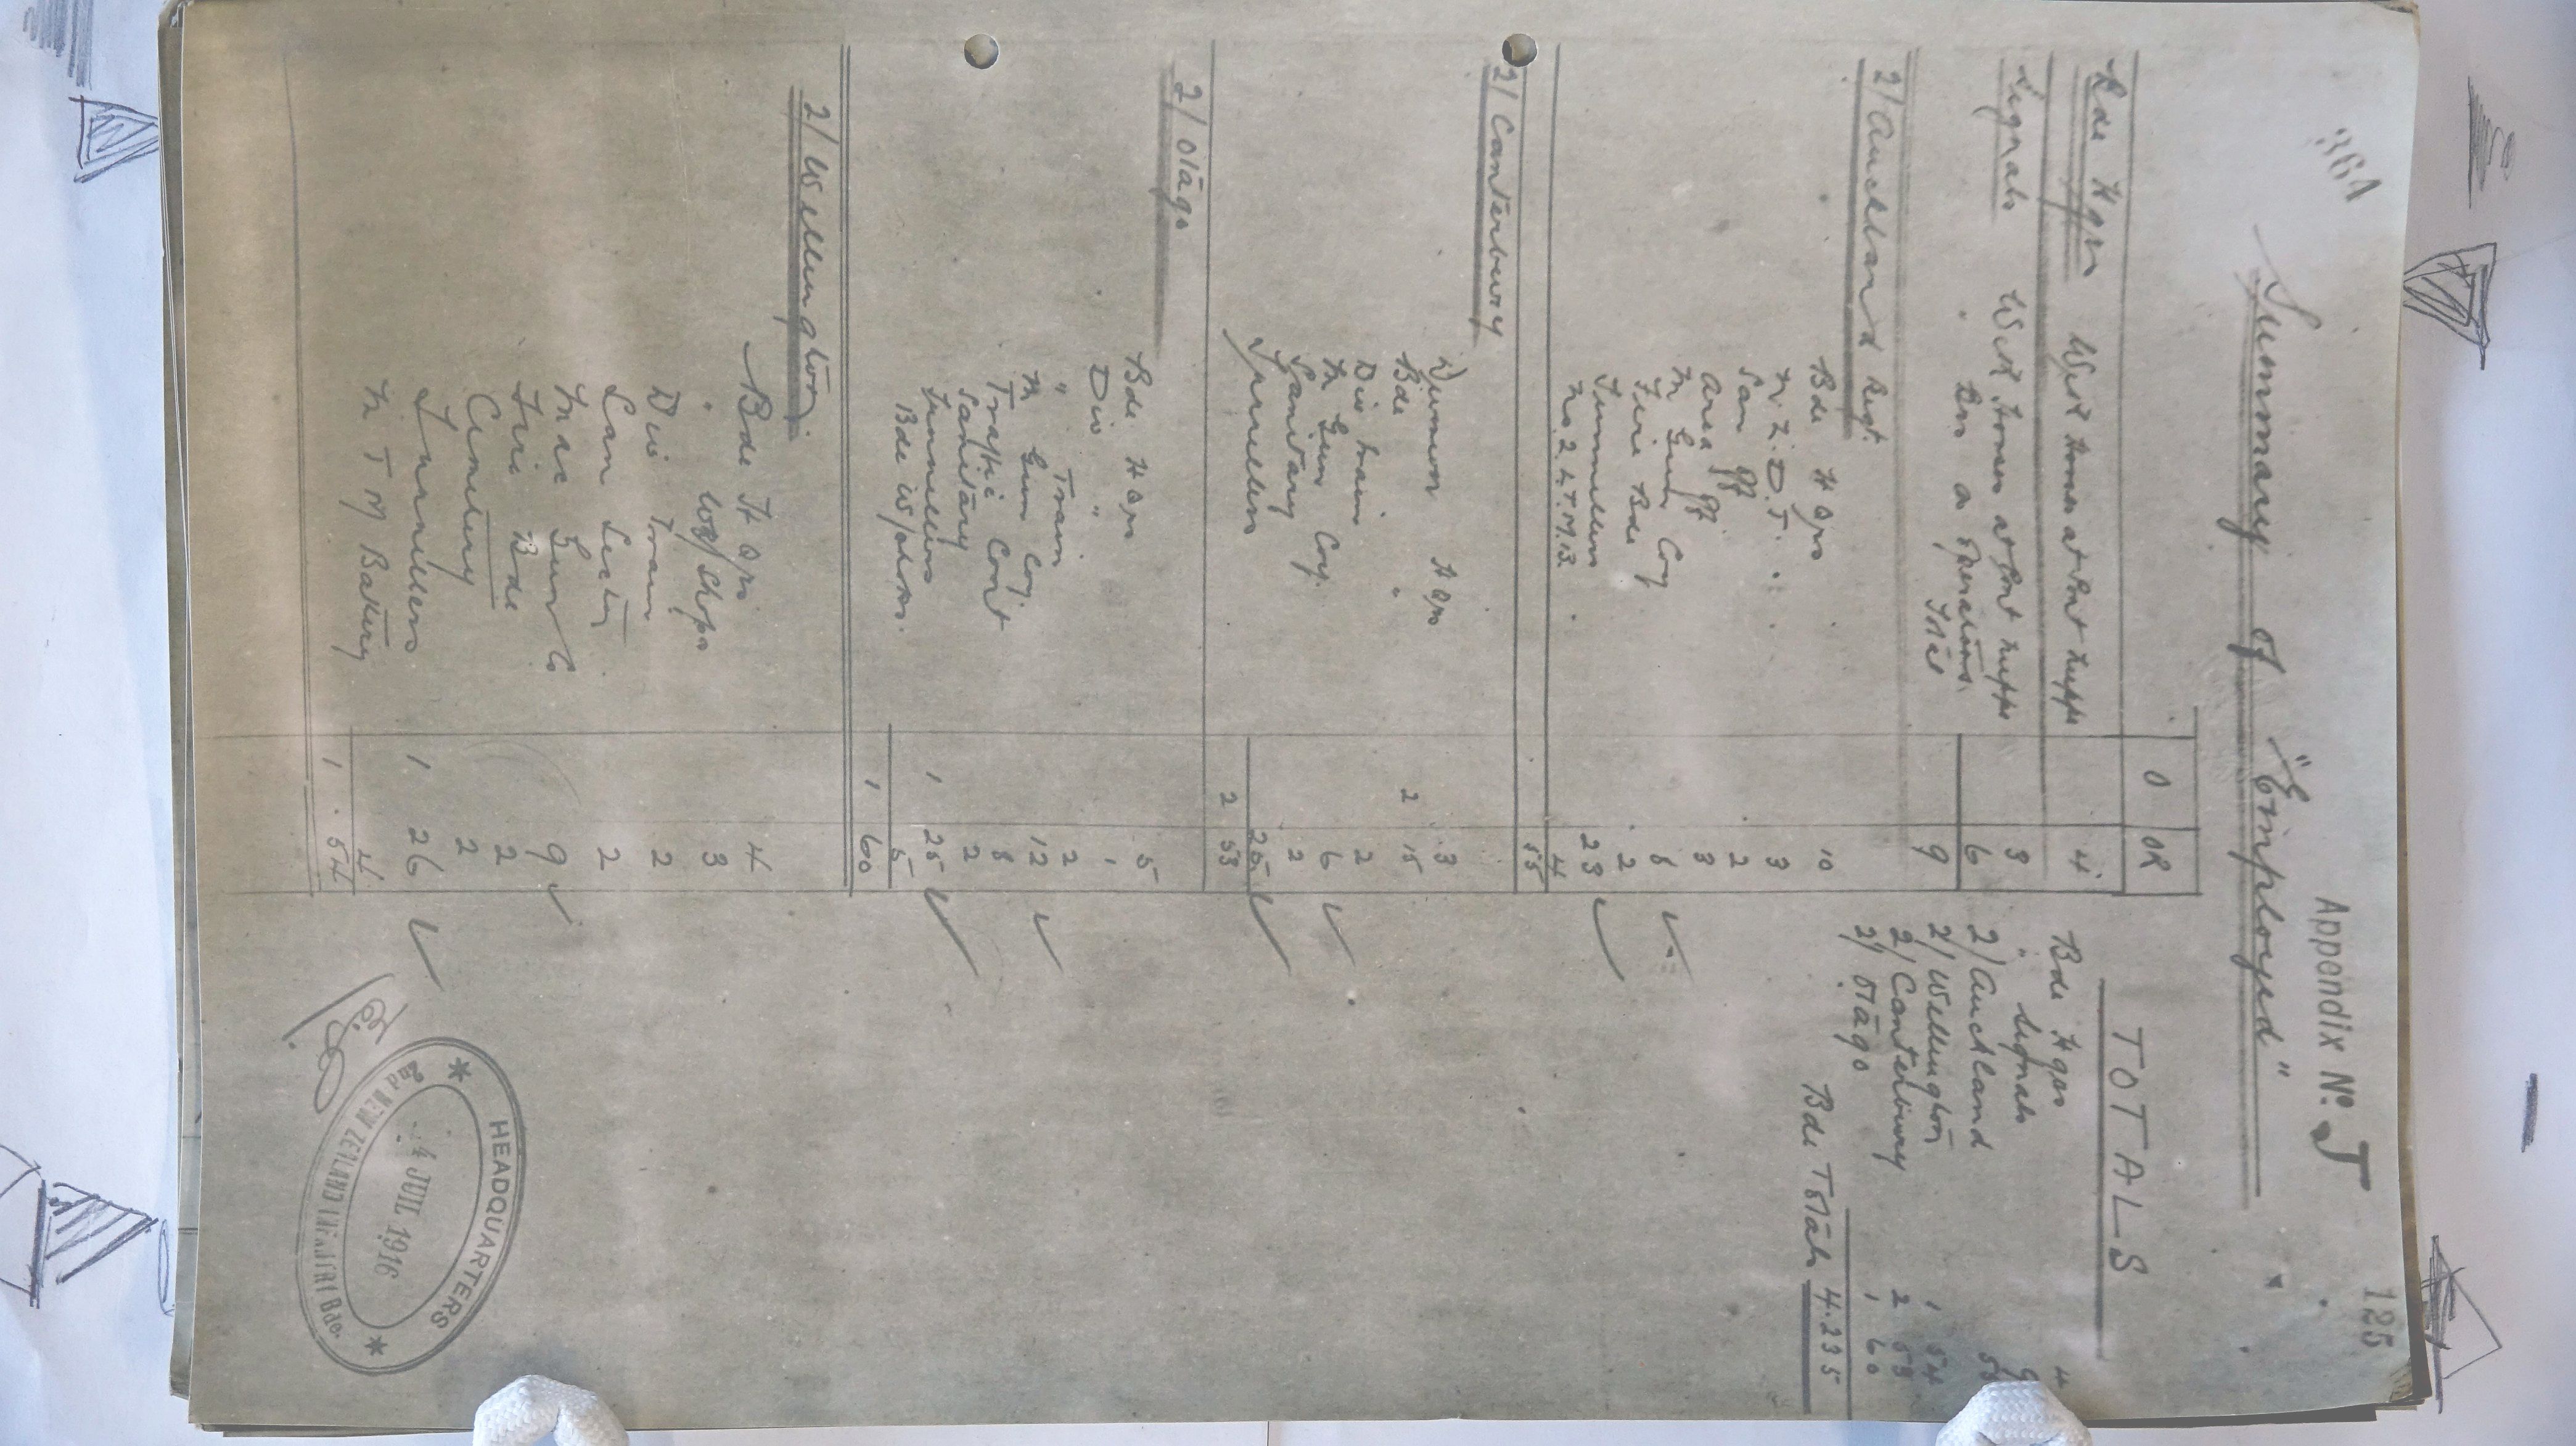 364
125
Appendix No. J
Summary of "Employed"
O OR
Bde Hqrs With Horses at Pont Nieppe 4
Signals With Horses at Pont Nieppe 3
" Bn as operators. 6
Total 9
2/Auckland Regt.
Bde Hqrs 10
N.Z.D.T. 3
San Off 2
Area Off. 3
M Gun Coy 8
Fire Bde 2
Tunnellers 23
No 2 L.T.M.B. 4
55
2/Canterbury
Divisional Hqrs 3
Bde " 2 15
Div Train 2
M Gun Coy. 6
Sanitary 2
Tunnellers 25
2 53
2/Otago
Bde Hqrs 5
Div " 1
" Train 2
M Gun Coy. 12
Traffic Cont 8
Sanitary 2
Tunnellers 1 25
Bde W/shops. 5
1 60
2/Wellington
Bde Hqrs 4
" W/Shops 3
Div Train 2
San Sectn 2
Mac Gun Co 9
Fire Bde 2
Cemetery 2
Tunnellers 1 26
M T M Battery 4
1 . 54
TOTALS
Bde Hqrs 4
" Signals 9
2/Auckland
2/Wellington 1 54
2/Canterbury 2 53
2/Otago 1 60
Bde Totals 4.235
HEADQUARTERS
4 JUIL 1916
2nd NEW ZEALAND INFANTRY Bde.